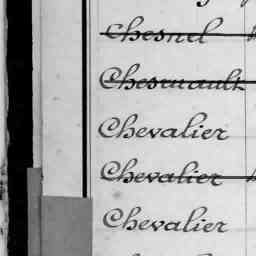 Chesnel
Chesnault
Chevalier
Chevalier
Chevalier